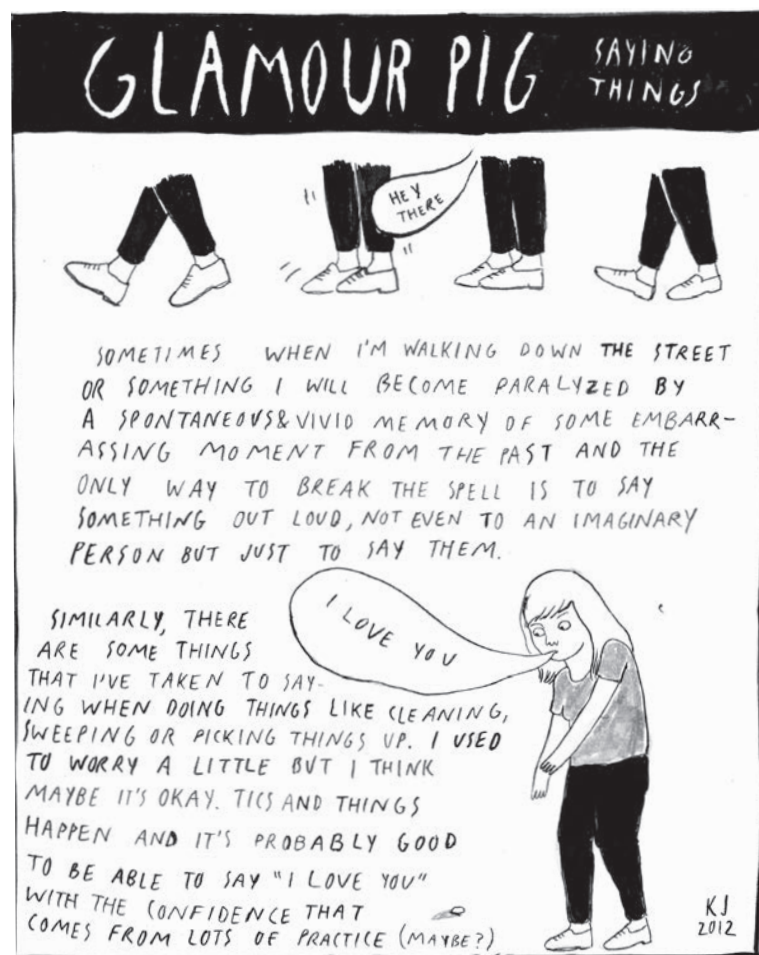 GLAMOUR PIG
SAYING
THINGS
HEY
THERE
SOMETIMES WHEN I'M WALKING DOWN THE STREET
OR SOMETHING I WILL BECOME PARALYZED BY
A SPONTANEOUS & VIVID MEMORY OF SOME EMBARR-
ASSING MOMENT FROM THE PAST AND THE
ONLY WAY TO BREAK THE SPELL IS TO SAY
SOMETHING OUT LOUD, NOT EVEN TO AN IMAGINARY
PERSON BUT JUST TO SAY THEM.
I LOVE YOU
SIMILARLY, THERE
ARE SOME THINGS
THAT I'VE TAKEN TO SAY-
ING WHEN DOING THINGS LIKE CLEANING,
SWEEPING OR PICKING THINGS UP. I USED
TO WORRY A LITTLE BUT I THINK
MAYBE IT'S OKAY. TICS AND THINGS
HAPPEN AND IT'S PROBABLY GOOD
TO BE ABLE TO SAY "I LOVE YOU"
WITH THE CONFIDENCE THAT
COMES FROM LOTS OF PRACTICE (MAYBE?)
KJ
2012